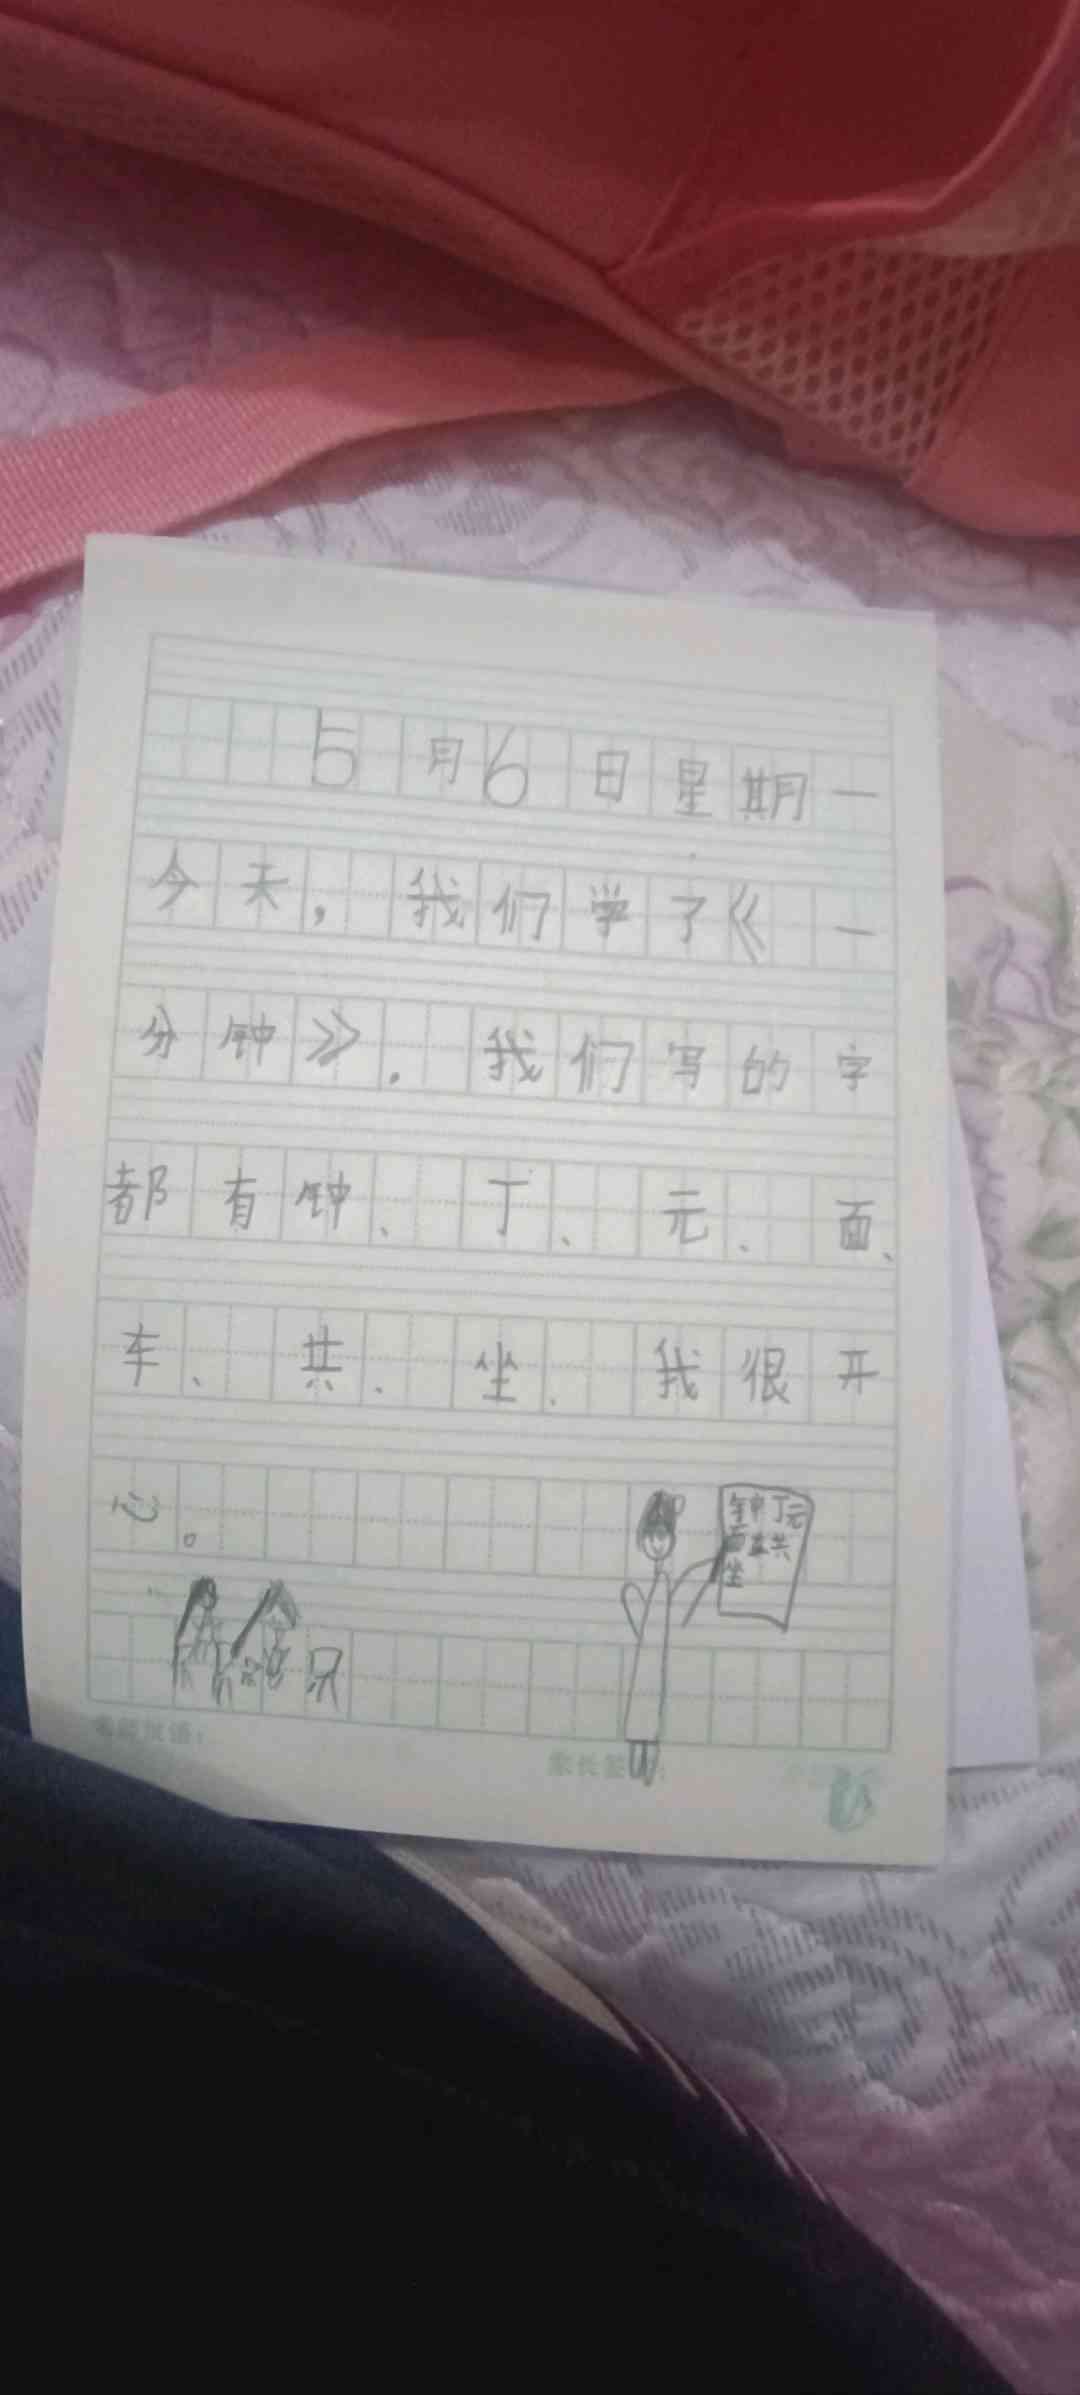 5月6日星期一
今天，我们学了《一
分钟》.我们写的字
都有钟、丁、元、面、
车、共、坐.我很开
心。
钟丁元
面车共
坐
家长签